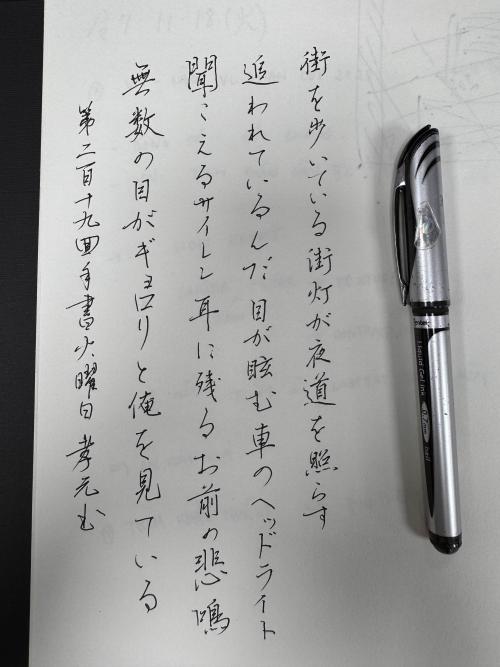 街を歩いている街灯が夜道を照らす
追われているんだ目が眩む車のヘッドライト
聞こえるサイレン耳に残るお前の悲鳴
無数の目がギョロリと俺を見ている
第二百十九回手書火曜日孝元也
Liquid Gel Ink
0.7mm
ball